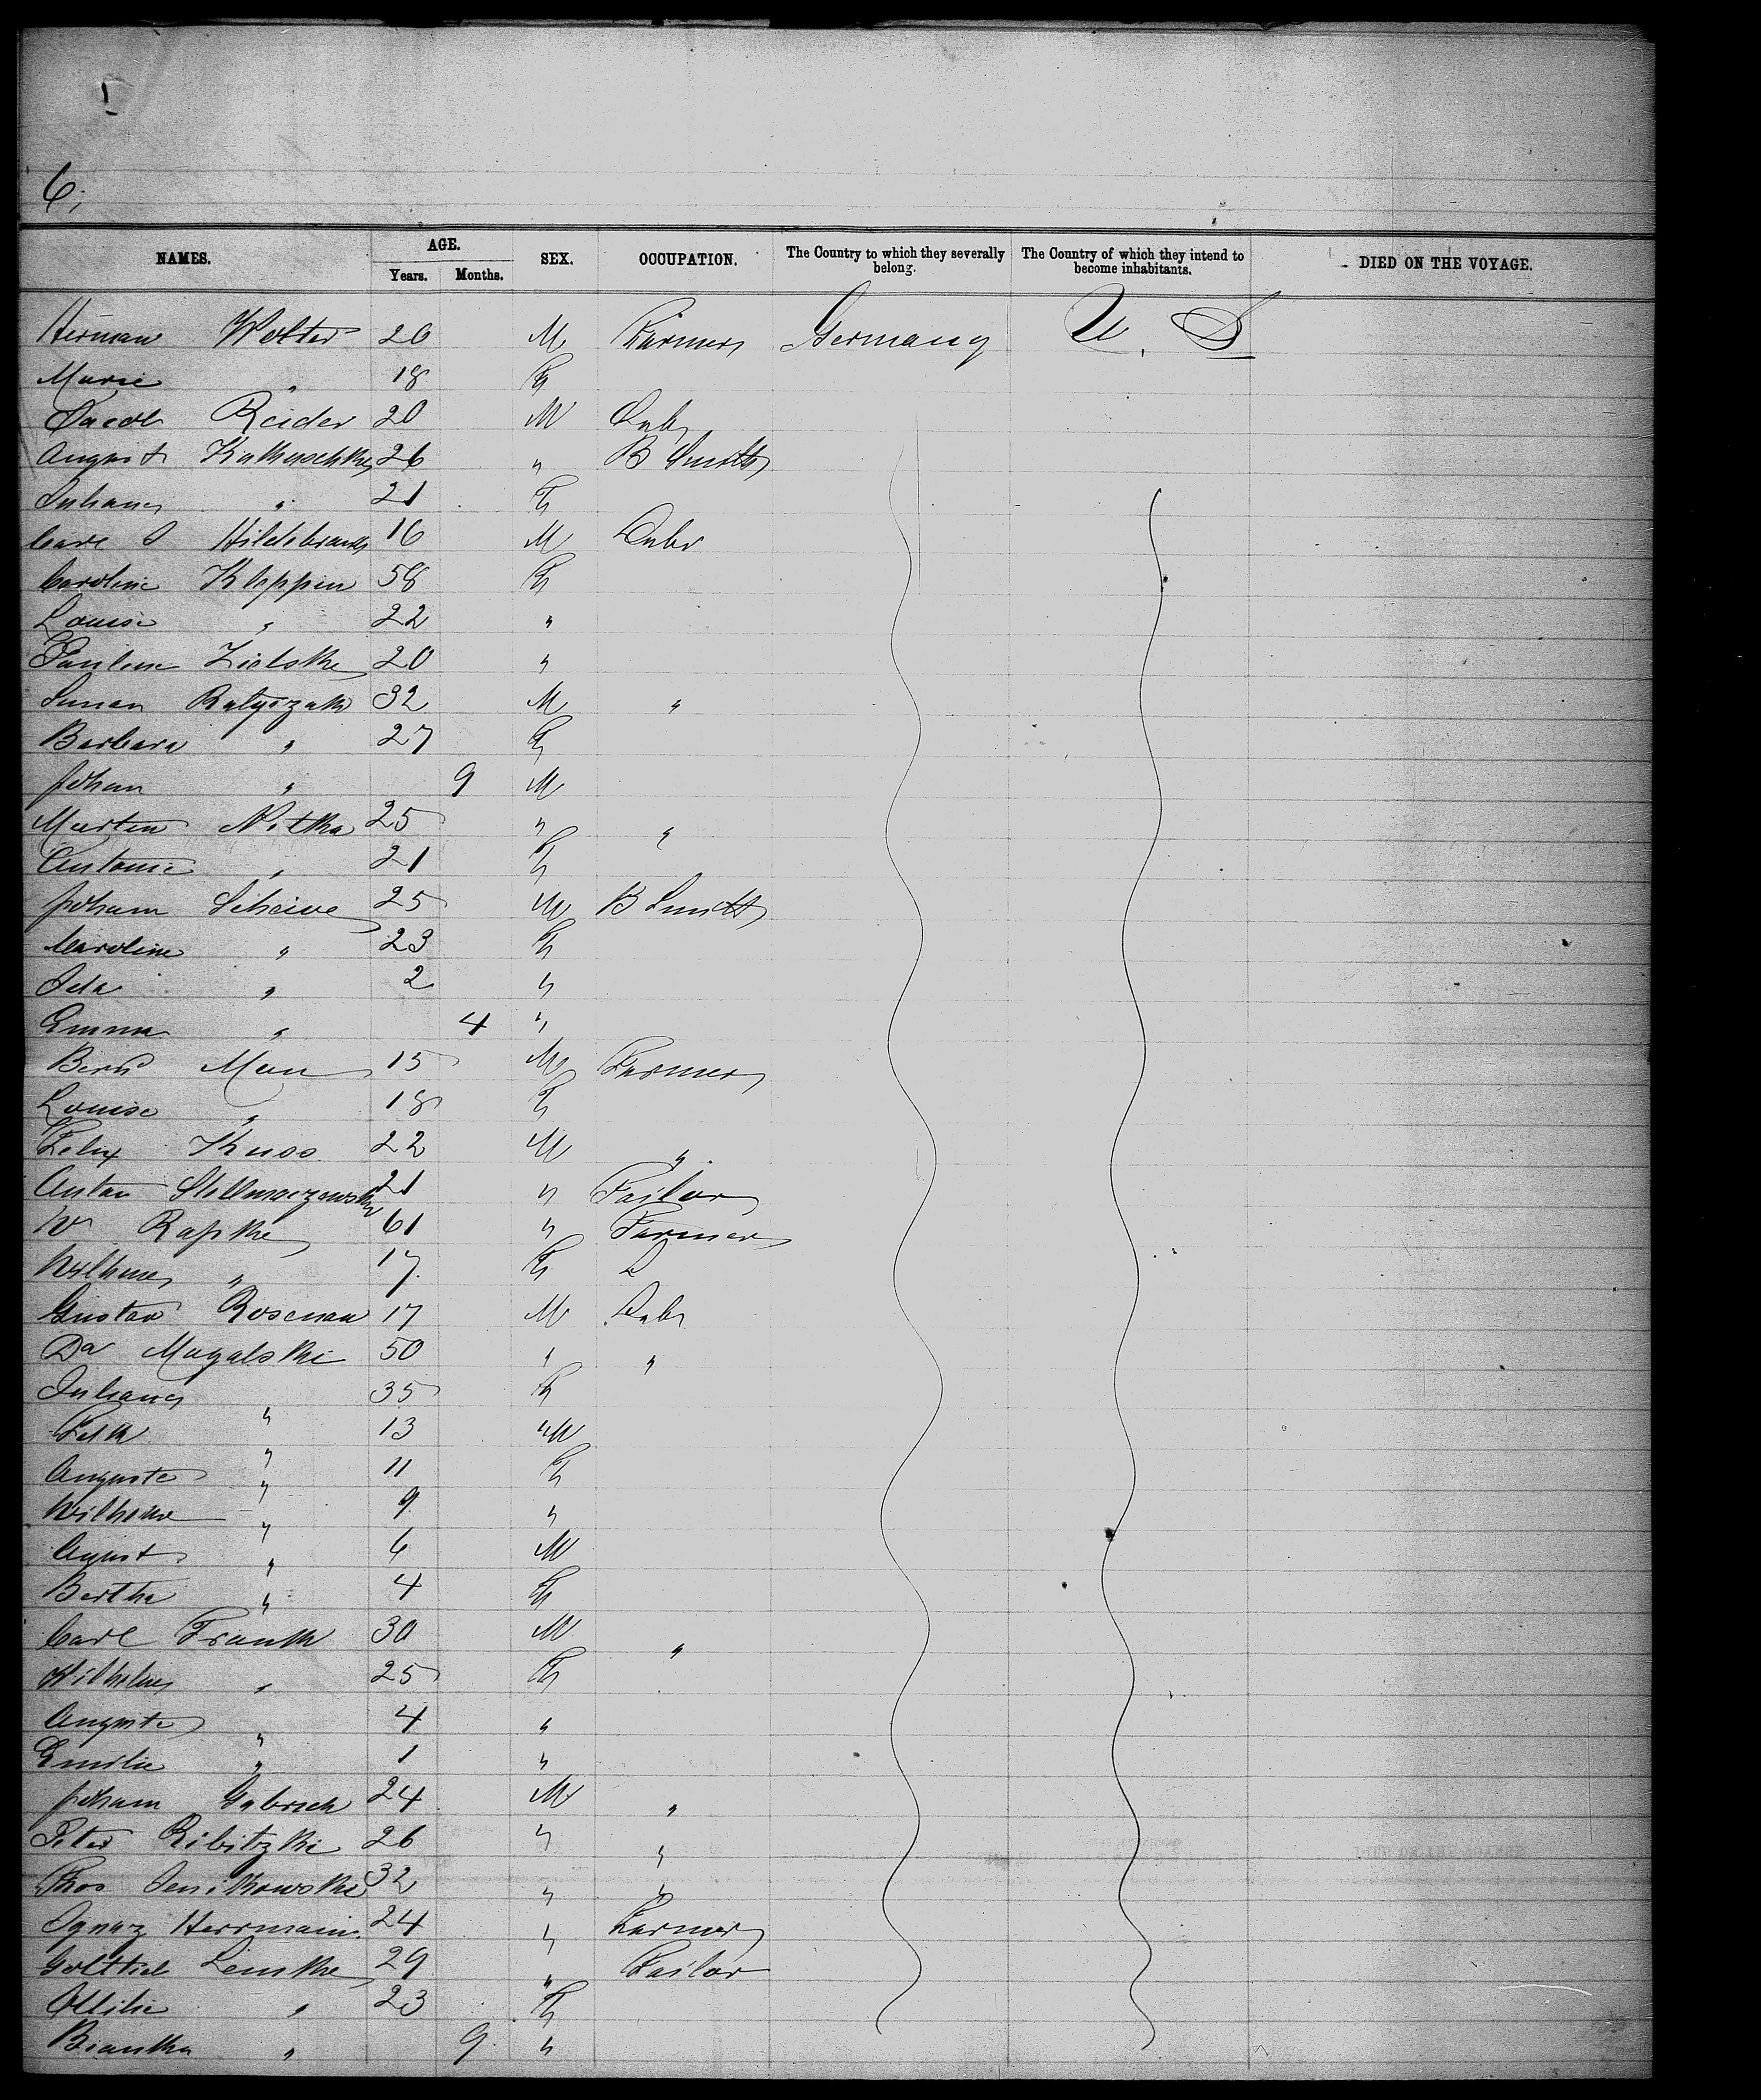 6,
NAMES. AGE. SEX. OCCUPATION. The Country to which they severally belong. The Country of which they intend to become inhabitants. DIED ON THE VOYAGE.
Years. Months.
Herman Wolter 26 M Farmer Germany U. S
Marie " 18 F
Jacob Reider 20 M Labr
August 26 " B Smith
Juliane " 21 F
Carl J Hildebrandt 16 M Labr
Caroline Kloppin 58 F
Louise " 22 "
Pauline Zielske 20 "
Ratyszak 32 M "
Barbara " 27 F
Johan " 9 M
Martin Nitka 25 " "
Antonie " 21 F
Johann Scheive 25 M B Smith
Caroline " 23 F
Ida " 2 "
Emma " 4 "
Bernd Man 15 M Farmer
Louise " 18 F
Felix Kuss 22 M "
Anton 21 " Tailor
Wm Rapske 61 " Farmer
" 17 F
Gustav Rosenau 17 M Labr
Da Mugalski 50 " "
Juliane " 35 F
" 13 M
Auguste " 11 F
Wilhelm " 9 "
Agust " 6 M
Bertha " 4 F
Carl Frank 30 M "
Wilhelm " 25 F
Auguste " 4 "
Emilie " 1 "
Johann Gabrich 24 M "
Peter Ribitzki 26 " "
Thos Jenikowski 32 " "
Ignaz Herrmann 24 " Farmer
Gottlieb Lemke 29 " Tailor
Ottilie " 23 F
Biantha " 9 "